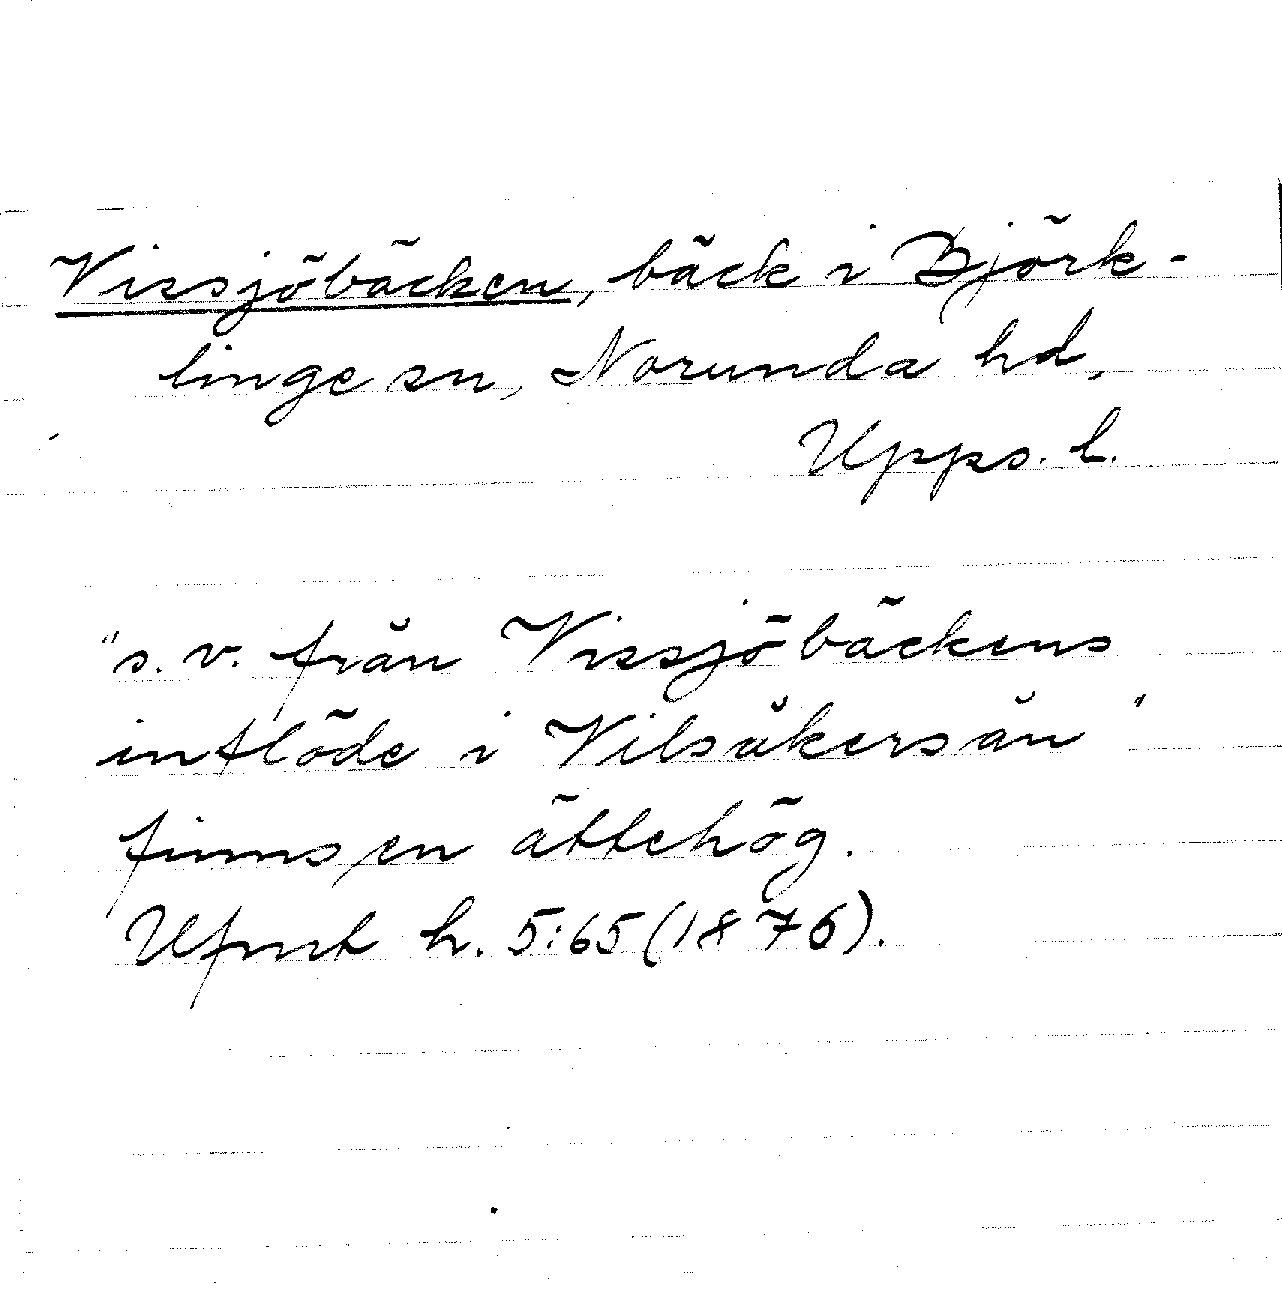 Vissjöbäcken, bäck i Björk-
linge sn, Norunda hd,
Upps. l.
"s. v. från Vissjöbäckens
inflöde i Vilsåkersån"
finns en ättehög.
Ufmt h. 5:65 (1876).